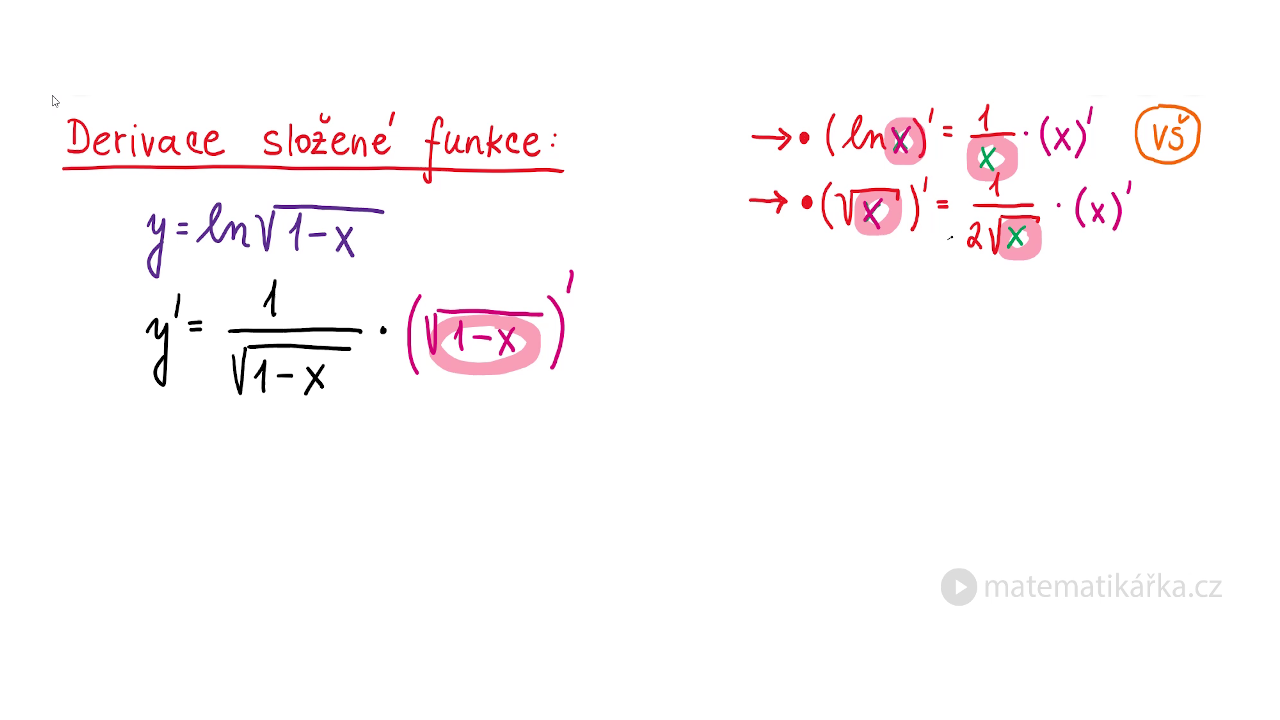 Derivace složené funkce:
y = ln√(1-x)
y' = 1/√(1-x) · (√(1-x))'
→ • (ln x)' = 1/x · (x)'
VŠ
→ • (√x)' = 1/(2√x) · (x)'
matematikářka.cz